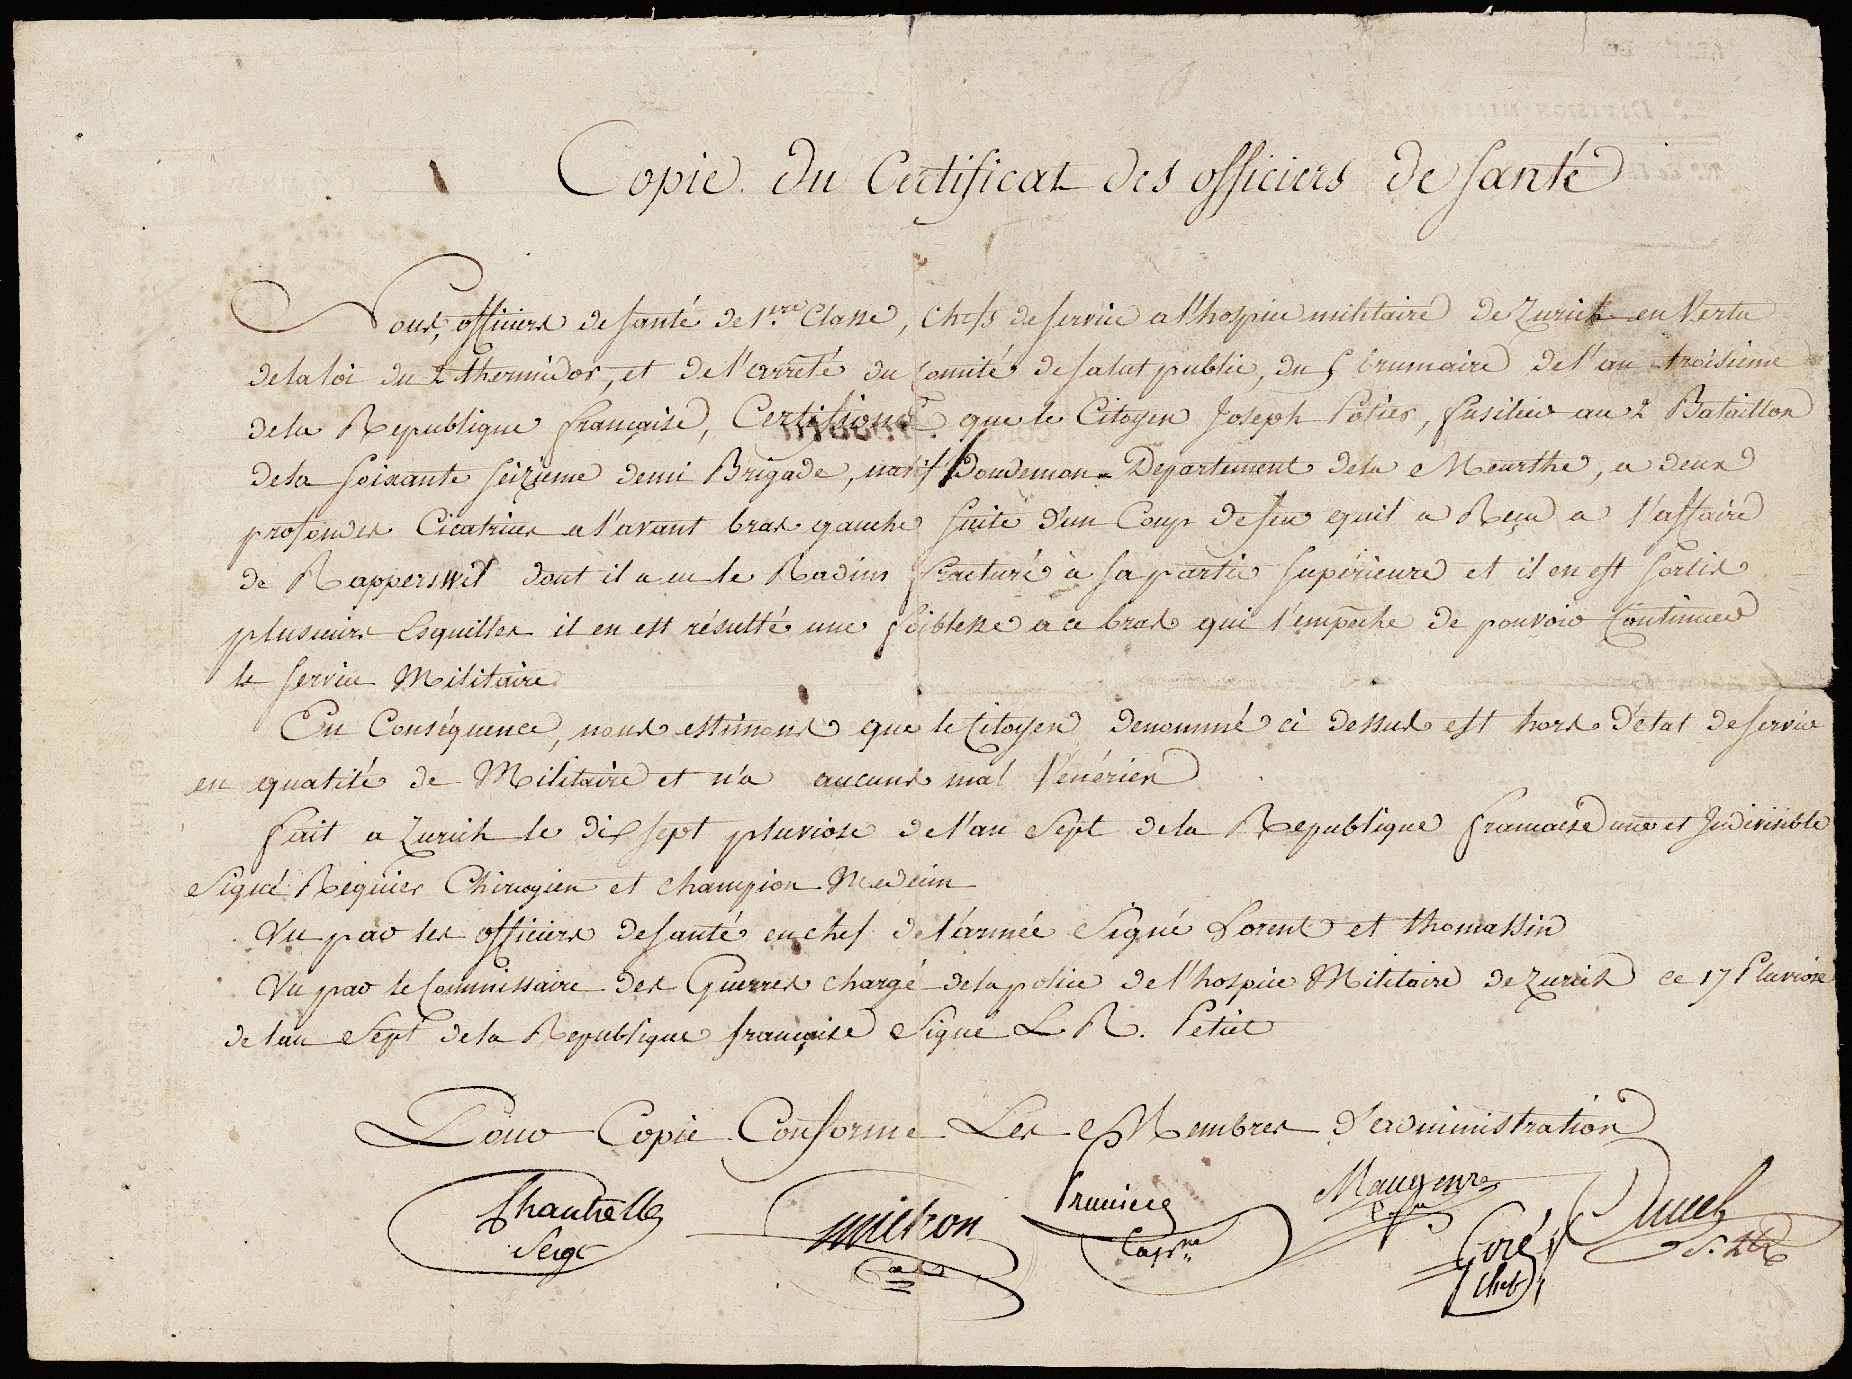 Copie du Certificat des officiers de santé
Nous, officiers de santé de 1.ere Classe, Chefs de service a l'hospice militaire de Zurich en Vertu
de la loi du 2 thermidor, et de l'arrêté du Comité de salut public, du 5 brumaire de l'an troisieme
de la Republique française, Certifions que le Citoyen Joseph Potier, fusilier au 2 Bataillon
de la soixante seizieme demi Brigade, natif Doudemon Departement de la Meurthe, a deux
profondes Cicatrices a l'avant bras gauche suite d'un Coup de feu quil a Reçu a l'affaire
de Rapperswil dont il a eu le Radius fracturé à sa partie supérieure et il en est sortis
plusieurs Esquilles il en est résulté une foiblesse a ce bras qui l'empêche de pouvoir Continuer
le service Militaire
En Conséquence, nous estimons que le Citoyen denommé ci dessus est hors d'état de servir
en qualité de Militaire et n'a aucuns mal Venérien
fait a Zurich le dix sept pluviose de l'an Sept de la Republique francaise une et Indivisible
Signé Réquier Chirurgien et Champion Medecin
Vu par les officiers de santé en chef de l'armée Signé Lorent et thomassin
Vu par le Commissaire des Guerres chargé de la police de l'hospice Militaire de Zurich ce 17 Pluviose
de lan Sept de la Republique française Signé L R. Petiet
Pour Copie Conforme Les Membres d'administration
Chantrelle
Serg
miclon
Capne
Maugenre
Giré
Chef